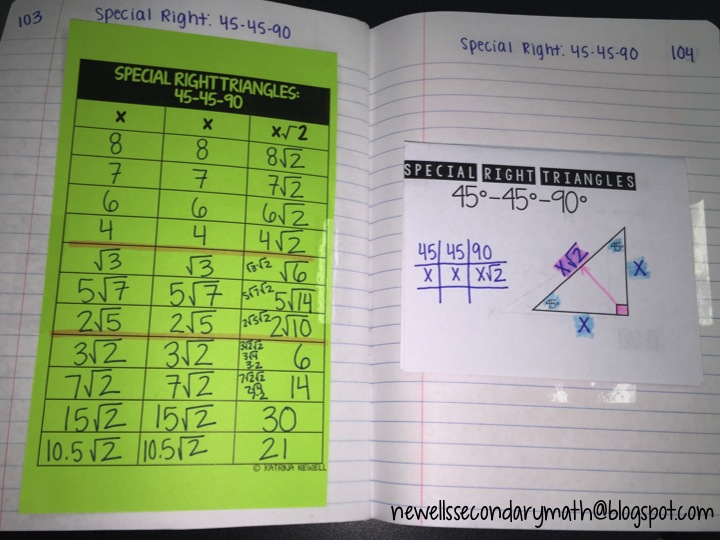 103
Special Right: 45-45-90
SPECIAL RIGHT TRIANGLES:
45-45-90
x x x√2
8 8 8√2
7 7 7√2
6 6 6√2
4 4 4√2
√3 √3 √3·√2 √6
5√7 5√7 5√7√2 5√14
2√5 2√5 2√5√2 2√10
3√2 3√2 3√2√2 3√4 3·2 6
7√2 7√2 7√2√2 7√4 7·2 14
15√2 15√2 30
10.5√2 10.5√2 21
© KATRINA NEWELL
Special Right: 45-45-90 104
SPECIAL RIGHT TRIANGLES
45°-45°-90°
45 45 90
x x x√2
x√2
45°
x
45°
x
newellssecondarymath@blogspot.com